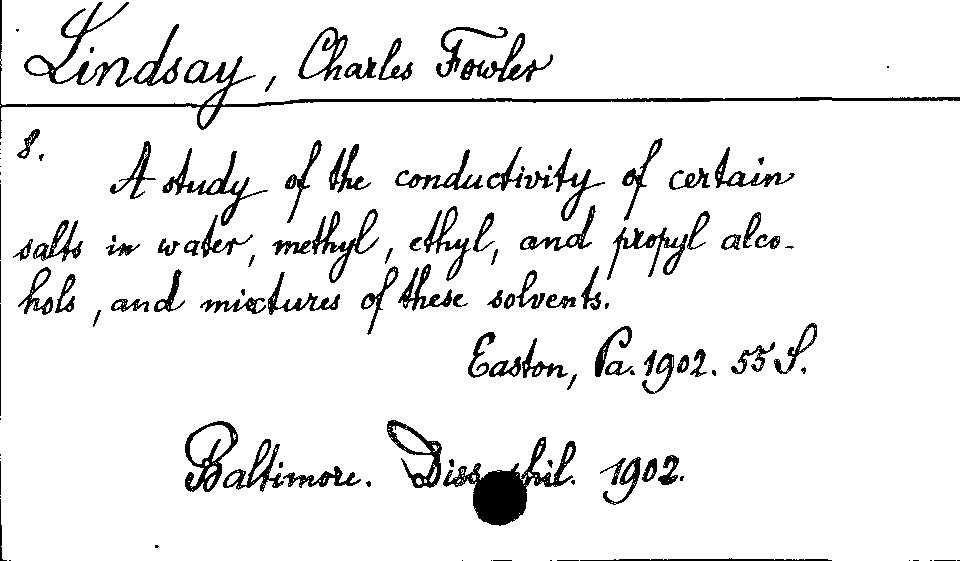 Lindsay, Charles Fowler
8.
A study of the conductivity of certain
salts in water, methyl, ethyl, and propyl alco-
hols, and mixtures of these solvents.
Easton, Pa. 1902. 55 S.
Baltimore. Diss. phil. 1902.